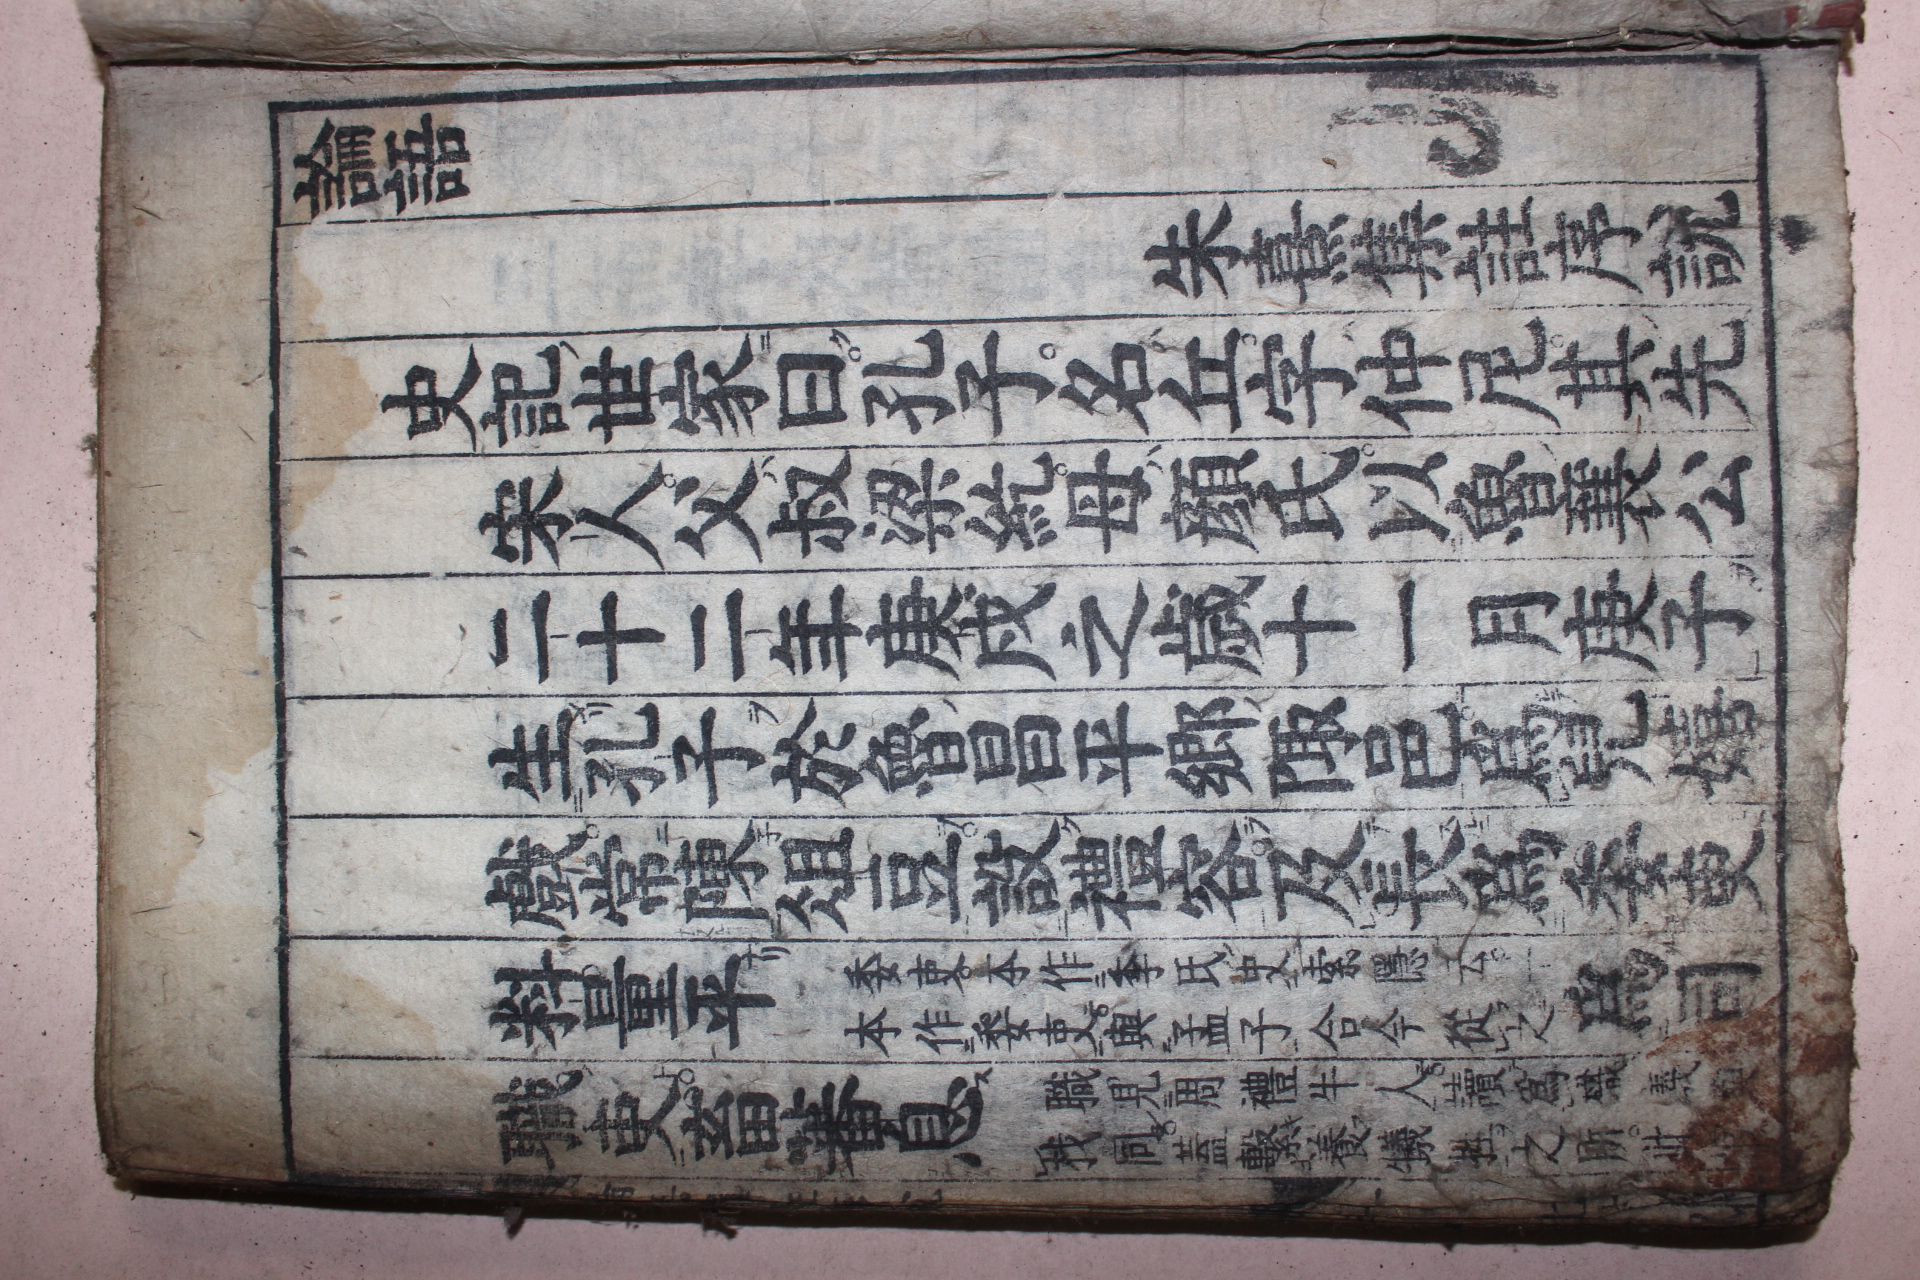 論語
朱熹集註序說
史記世家曰孔子名丘字仲尼其先
宋人父叔梁紇母顏氏以魯襄公
二十二年庚戌之歲十一月庚子
生孔子於魯昌平鄉陬邑爲兒嬉
戲常陳俎豆設禮容及長爲委吏
料量平
委吏本作季氏史索隱云一
本作委吏與孟子合今從之
爲司
職吏畜蕃息
職見周禮牛人讀爲樴義與
杙同蓋繫養犧牲之所此